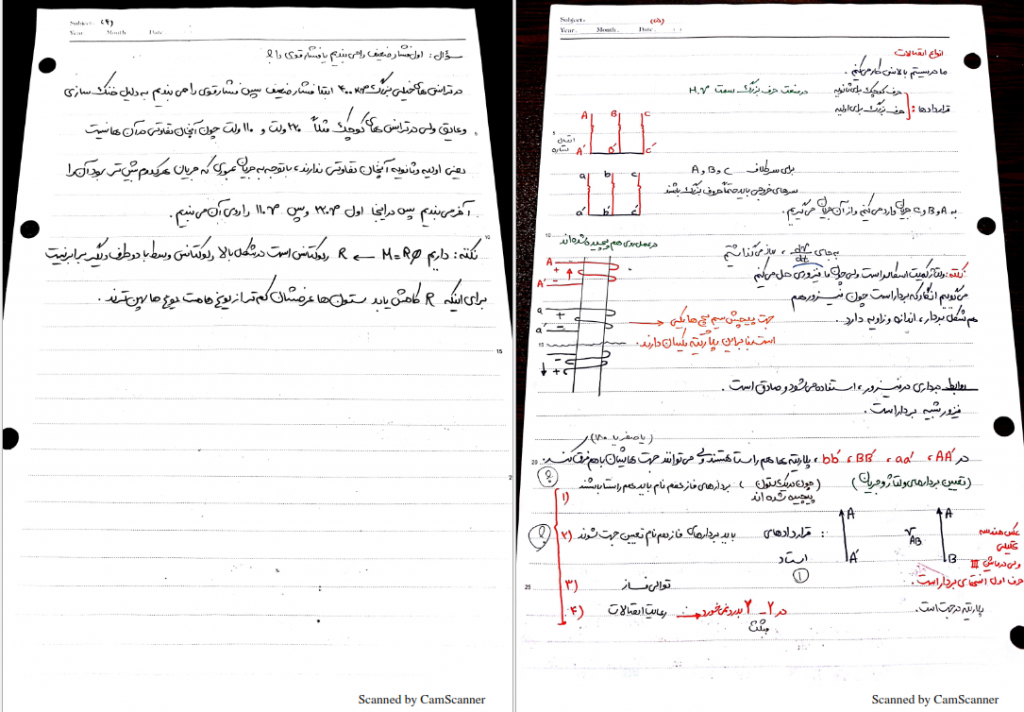 Subject: (۴)
Year Month Date
سؤال: اول فشار ضعیف را می بندیم یا فشار قوی را؟
در ترانس های خیلی بزرگ ۴۰۰ ابتدا فشار ضعیف سپس فشار قوی را می بندیم به دلیل خنک سازی
و عایق ولی در ترانس های کوچک مثلاً ۲۲۰ ولت و ۱۱۰ ولت چون آنچنان تفاوتی در آن ها نیست
یعنی اولیه و ثانویه آنچنان تفاوتی ندارند، با توجه به جریان عبوری که جریان هر کدام بیش تر بود آن را
آخر می بندیم پس در اینجا اول ۲۲۰ و سپس ۱۱۰ را روی آن می بندیم.
نکته: داریم M=Rφ ← R رلوکتانس است در شکل بالا رلوکتانس وسط با دو طرف دیگر برابر نیست
برای اینکه R کاهش یابد ستون ها عرضشان کم تر از یوغ هاست یوغ ها پهن ترند.
Scanned by CamScanner
Subject: (۵)
Year. Month. Date.
انواع اتصالات
ما در سیستم بالانس کار می کنیم.
قراردادها: حرف کوچک برای ثانویه
حرف بزرگ برای اولیه
در صنعت حرف بزرگ سمت H.V
A B C
A' B' C'
a b c
a' b' c'
برای سر کلاف A و B و C
سرهای خروجی باید حتماً حروف بزرگ باشند
به A و B و C جریان وارد می کنیم و از آن جریان می گیریم.
در عمل روی هم پیچیده شده اند
A
+
A' -
a +
a' -
-
+
به جای dφ/dt، ساز می گذاشتیم
نکته: ولتاژ کمیت اسکالر است ولی چون ما فیزوری حل می کنیم
می گوییم انگار که بردار است چون فیزور هم
هم شکل بردار، اندازه و زاویه دارد.
جهت پیچش سیم پیچ ها یکی
است بنابراین پلاریته یکسان دارند.
روابط برداری در فیزور، استفاده می شود و صادق است.
فیزور شبیه بردار است.
(یا صفر یا ۱۸۰)
در AA'، aa'، BB'، bb'، پلاریته ها هم راستا هستند ولی می توانند جهت هایشان با هم فرق کند.
(تعیین بردارهای ولتاژ و جریان) (چون روی یک ستون پیچیده شده اند)
۱) بردارهای فاز هم نام باید هم راستا باشند
۲) باید بردارهای فاز هم نام تعیین جهت شوند : قراردادهای استاد
A A
A' V AB B
①
عکس هندسه تحلیلی
ولی در ماشین III
حرف اول انتهای بردار است.
۳) توالی فاز
پلاریته در جهت است.
۴) رعایت اتصالات ← در ۲-۲ به درد نمی خورد
مثلث
Scanned by CamScanner